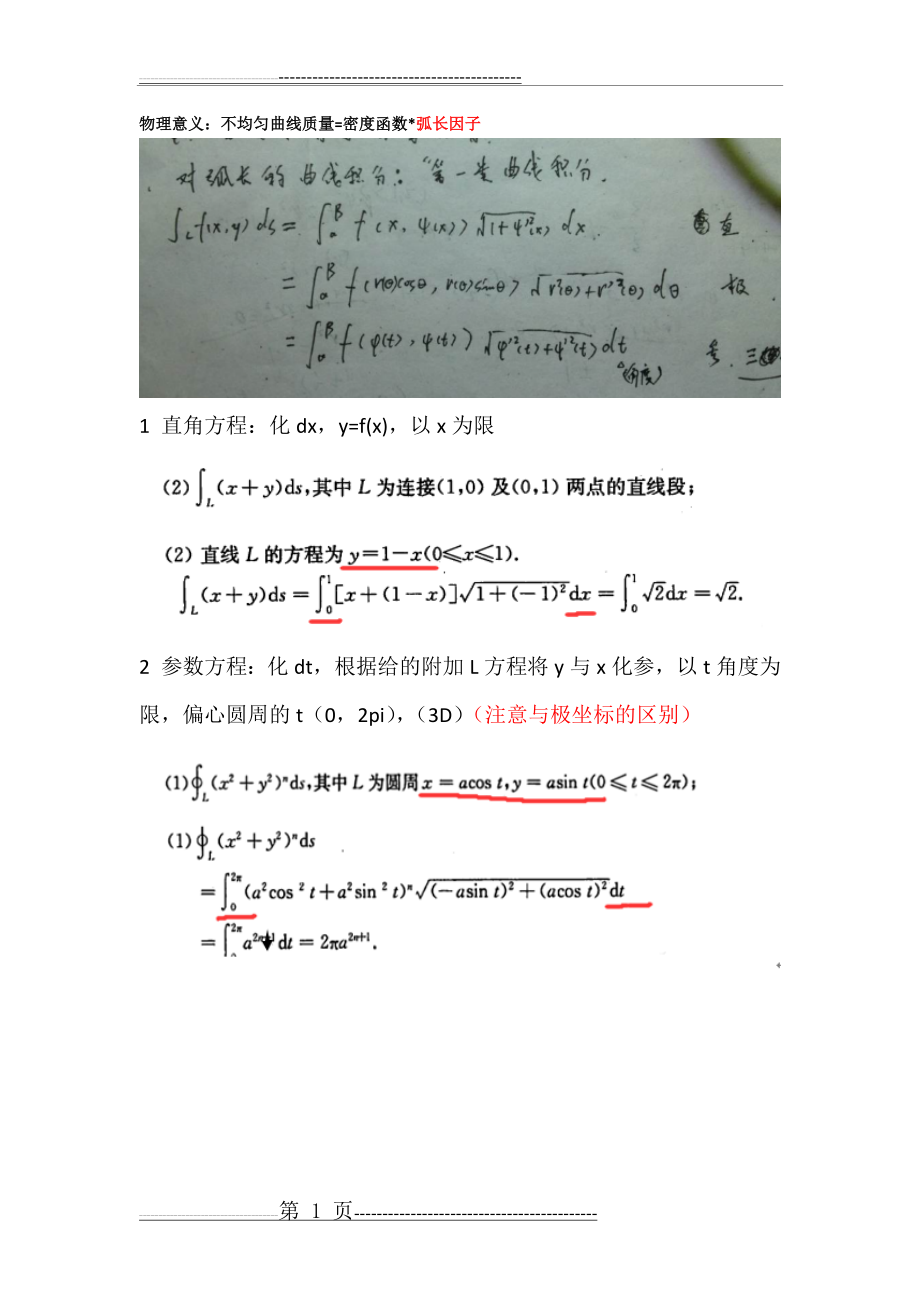 物理意义：不均匀曲线质量=密度函数*弧长因子
对弧长的曲线积分：“第一类曲线积分.
∫_L f(x,y) ds = ∫_α^β f(x, ψ(x)) √(1+ψ'²(x)) dx. 直
= ∫_α^β f(r(θ)cosθ, r(θ)sinθ) √(r²(θ)+r'²(θ)) dθ 极.
= ∫_α^β f(φ(t), ψ(t)) √(φ'²(t)+ψ'²(t)) dt
(角度)
1 直角方程：化 dx，y=f(x)，以 x 为限
(2)∫_L (x+y)ds,其中 L 为连接(1,0)及(0,1)两点的直线段;
(2) 直线 L 的方程为 y=1-x(0≤x≤1).
∫_L (x+y)ds=∫_0^1 [x+(1-x)]√(1+(-1)²)dx=∫_0^1 √2dx=√2.
2 参数方程：化 dt，根据给的附加 L 方程将 y 与 x 化参，以 t 角度为
限，偏心圆周的 t（0，2pi），（3D）（注意与极坐标的区别）
(1)∮_L (x²+y²)ⁿds,其中 L 为圆周 x=acos t,y=asin t(0≤t≤2π);
(1)∮_L (x²+y²)ⁿds
=∫_0^2π (a²cos²t+a²sin²t)ⁿ√((-asin t)²+(acos t)²)dt
=∫_0^2π a^(2n+1)dt=2πa^(2n+1).
第 1 页